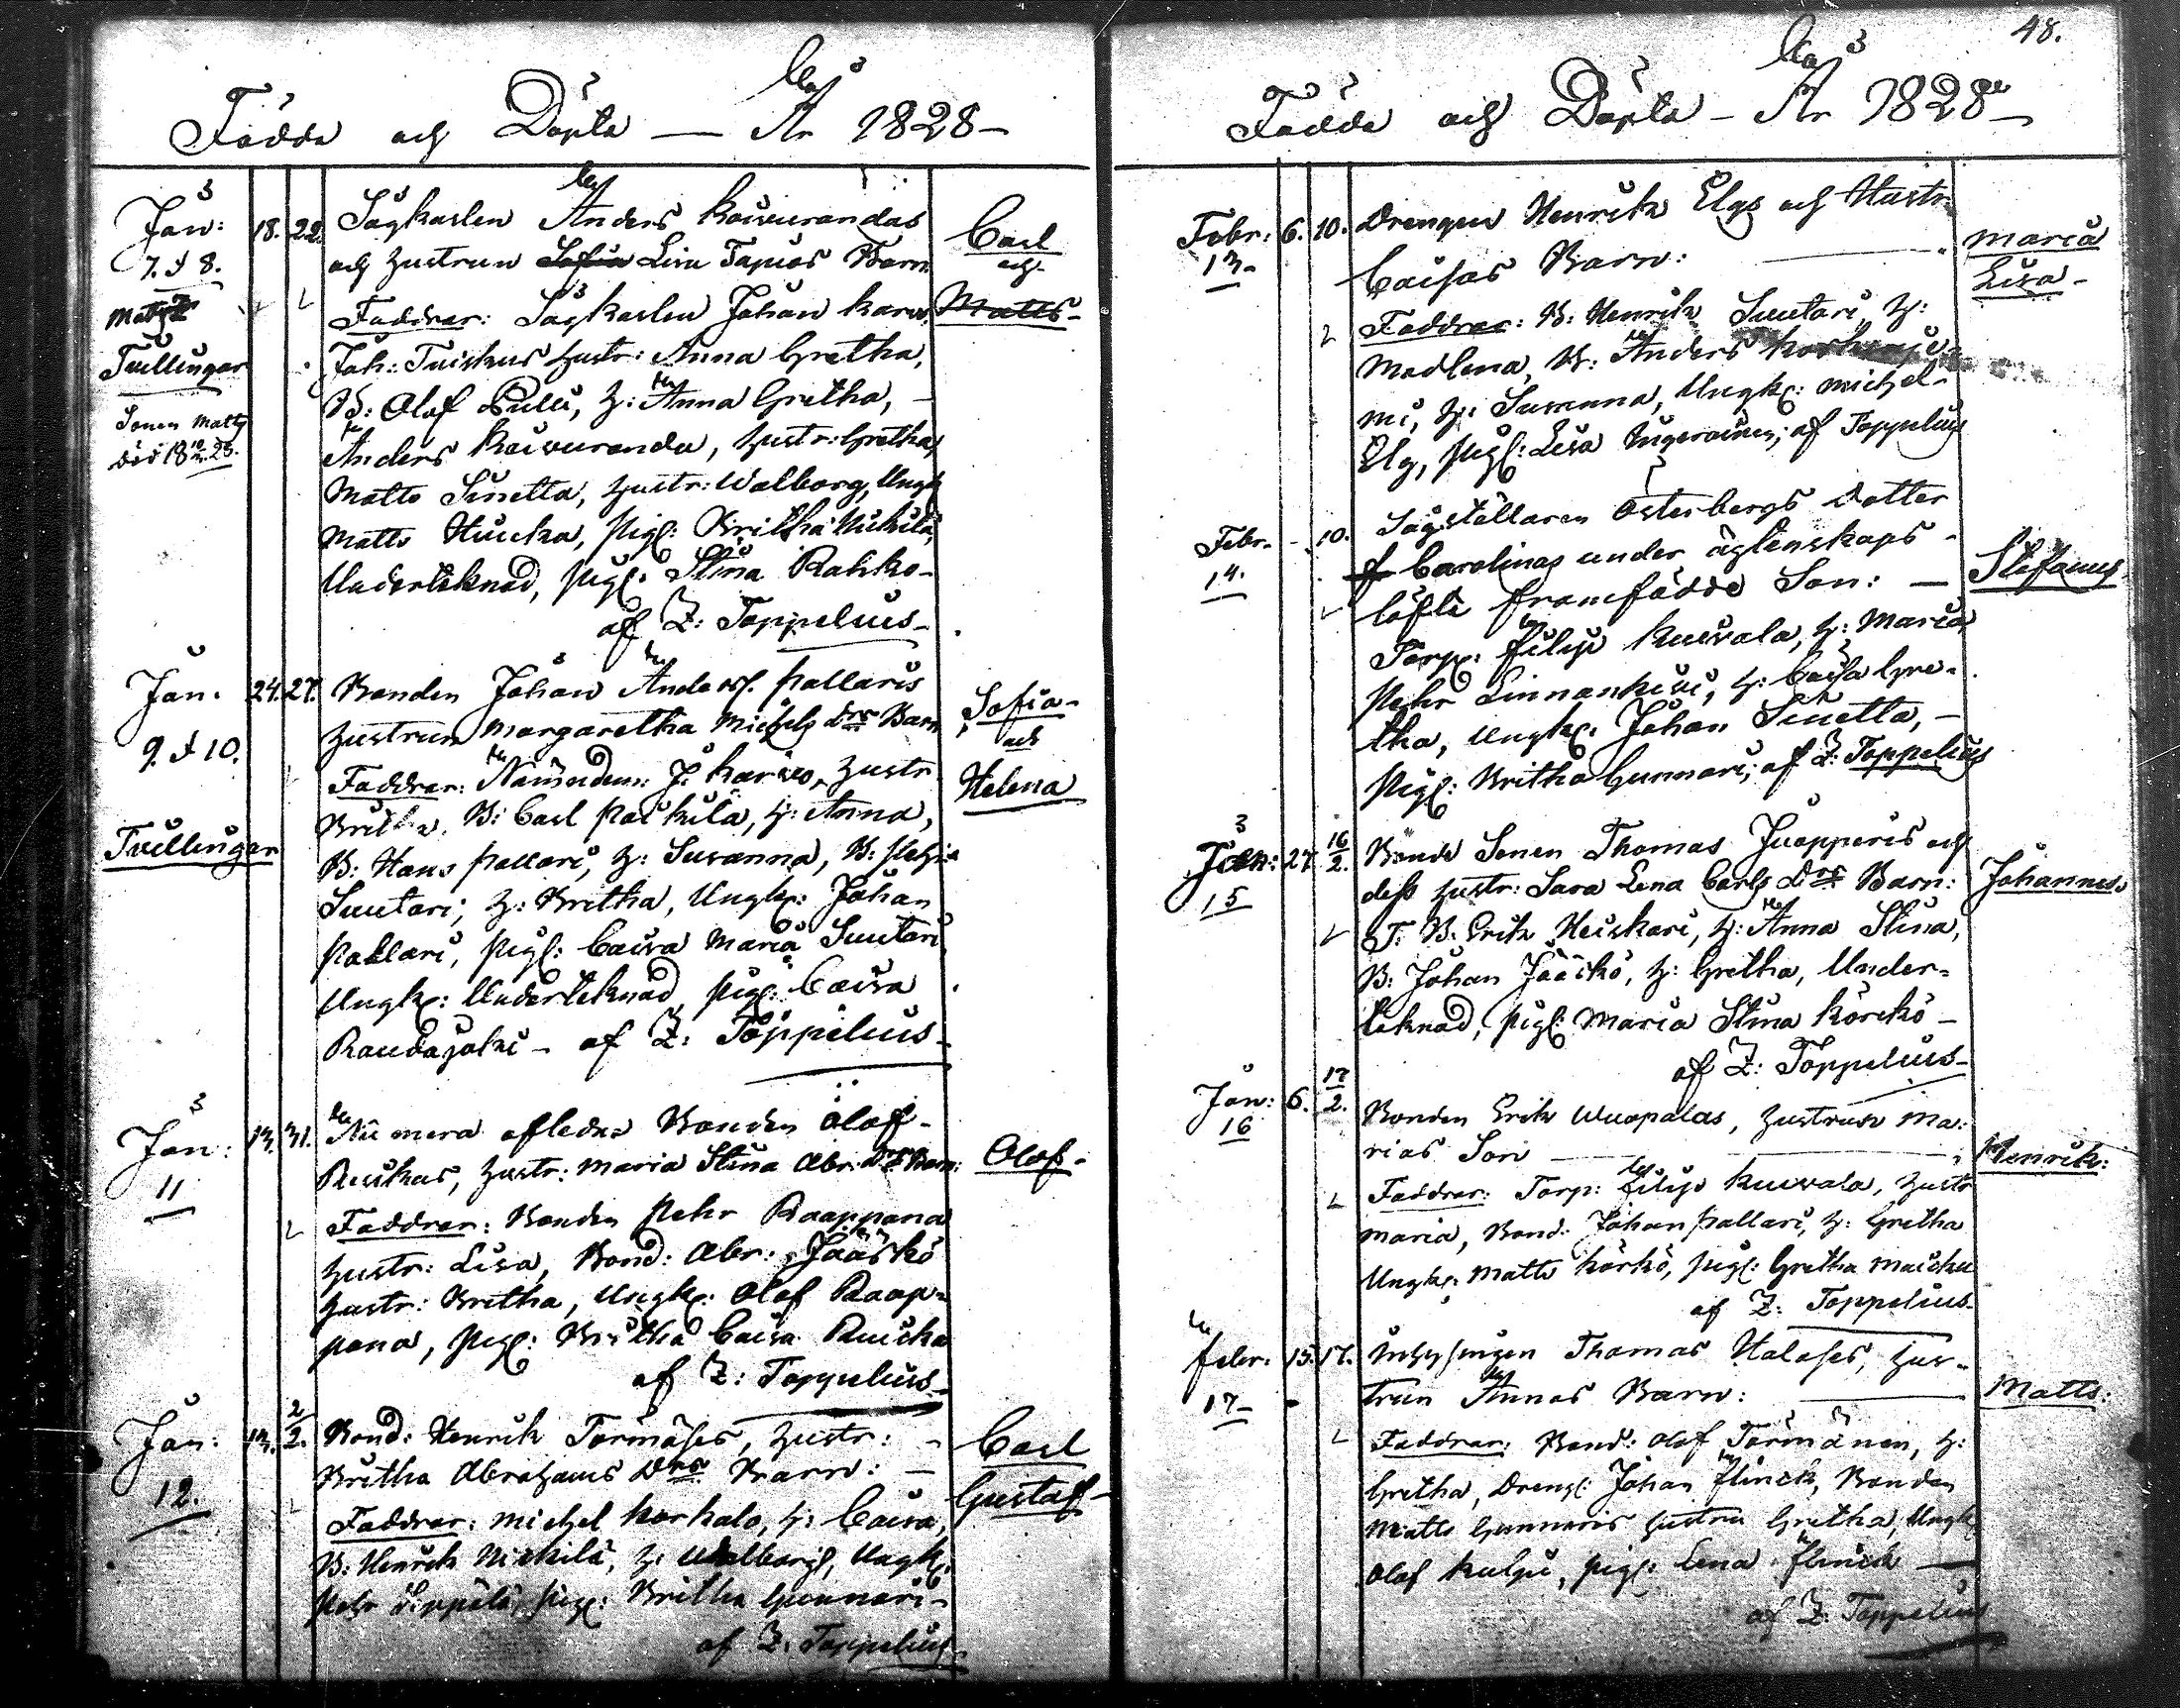 Födde och Döpte — År 1828 —
Jan: 18. 22. Sågkarlen Anders Koivurandas
7. & 8. och hustrun Lisa Tapios Barn Carl
och
Faddrar: Sågkarlen Johan Matts
Tvillingar Joh: Tuiskus hustr: Anna Gretha,
B: Olof Pulli, H: Anna Gretha,
Sonen Matts Anders Koivuranda, hustr: Gretha,
död Matts Sinetta, hustr: Walborg, Ungk
Matts Huicka, Pig: Britha
Underteknad, Pig: Stina Rahko-
af Z: Toppelius
Jan. 24. 27. Bonden Johan Anders. Pallaris
hustrun Margaretha Michels Drs Barn Sofia
9. & 10. Faddrar: Nämndem: J: hustr och
Britha, B: Carl Paikila, H: Anna, Helena
Tvillingar B: Hans Pallari, H: Susanna, B: Pehr
Suutari, H: Britha, Ungk: Johan
Pallari, Pig: Caisa Maria Suutari,
Ungk: Underteknad, Pig: Caisa
Raudajoki - af Z: Toppelius
Jan: 13. 31. Nu mera afledne Bonden Olof
11 Ruikas, hustr: Maria Stina Abr: Drs Barn: Olof.
Faddrar: Bonden Pehr Raappana
hustr: Lisa, Bond: Abr: Jääskö
hustr: Britha, Ungk: Olof Raap-
pana, Pig: Britha Caisa Ruicka
af Z: Toppelius
Jan: 13. 2/2. Bond: Henrik Törmäses, hustr:
Britha Abrahams Drs Barn: Carl
12. Faddrar: Michel Korkalo, H: Caisa, Gustaf
B: Henrik Nickilä, H: Walborg, Ungk:
Pehr Seppälä, Pig: Britha Gunnari
af Z. Toppelius
48.
Födde och Döpte - År 1828
Febr: 6. 10. Drengen Henrik Elgs och Hustr.
13 Caisas Barn: Maria
Lisa
Faddrar: B: Henrik Suutari, H:
Madlena, B: Anders
mi, H: Susanna, Ungk: Michel
Elg, Pig: Lisa af Toppelius
Febr. - 10. Sågställaren Österbergs dotter
14. Carolinas under äglenskaps
löfte framfödde Son: — Stefanus
Torp: Filip Kuivala, H: Maria,
Pehr Linnankivi, H: Caisa Gre-
tha, Ungk: Johan Sinetta,
Pig: Britha Gunnari; af Z: Toppelius
Jan: 27. 16/2. Bonde Sonen Thomas Juopperis och
15 dess hustr: Sara Lena Carls Drs Barn: Johannes
F: B: Erik Heiskari, H: Anna Stina,
B: Johan Jääskö, H: Gretha, Under-
teknad, Pig: Maria Stina Körckö
af Z: Toppelius
Jan: 6. 17/2. Bonden Erik Wuopalas, hustrun Ma-
16 rias Son Henrik:
Faddrar: Torp: Filip Kuivala, hustr
Maria, Bond: Johan Pallari, H: Gretha
Ungk: Matts Körkö, Pig: Gretha
af Z: Toppelius
Febr. 15. 17. Inhysingen Thomas Haloses, hus-
17 trun Annas Barn: Matts:
Faddrar: Bond: Olof Törmänen, H:
Gretha, Dreng: Johan Flinck, Bonden
Matts Gunnaris hustru Gretha, Ungk
Olof Kulpi, Pig: Lena Flinck —
af Z: Toppelius